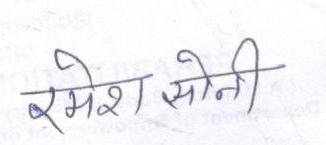 रमेश सोनी